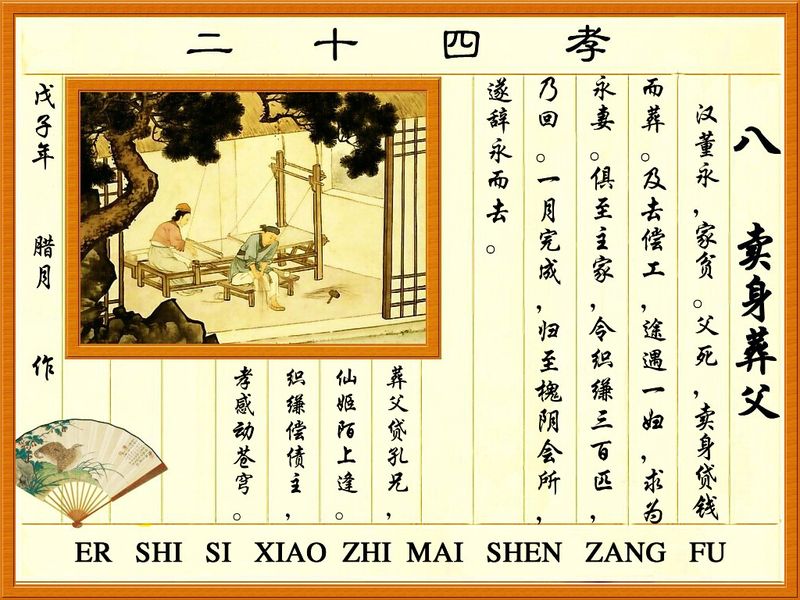 二十四孝
八 卖身葬父
汉董永，家贫。父死，卖身贷钱
而葬。及去偿工，途遇一妇，求为
永妻。俱至主家，令织缣三百匹，
乃回。一月完成，归至槐阴会所，
遂辞永而去。
葬父贷孔兄，
仙姬陌上逢。
织缣偿债主，
孝感动苍穹。
戊子年 腊月 作
ER SHI SI XIAO ZHI MAI SHEN ZANG FU